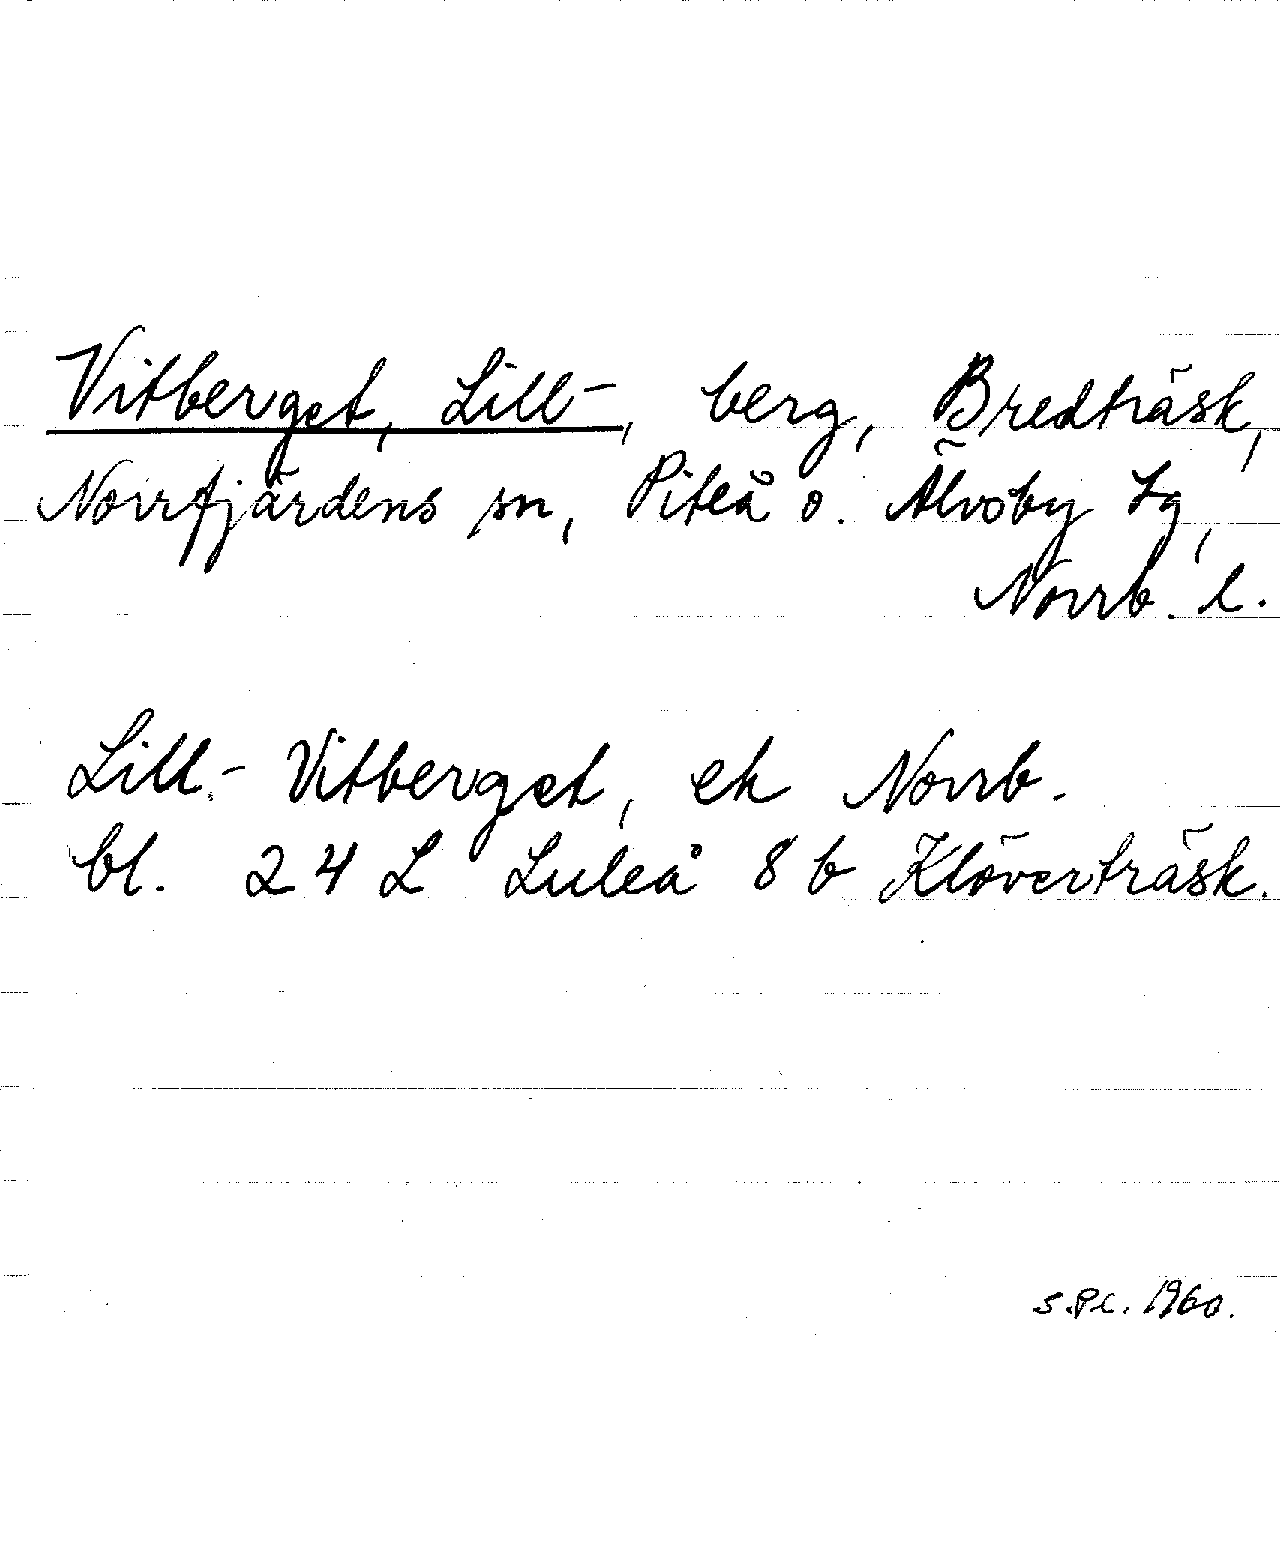 Vitberget, Lill-, berg, Bredträsk,
Norrfjärdens sn, Piteå o. Älvsby tg,
Norrb. l.
Lill-Vitberget, ek Norrb.
bl. 24 L Luleå 8 b Klöverträsk.
1960.